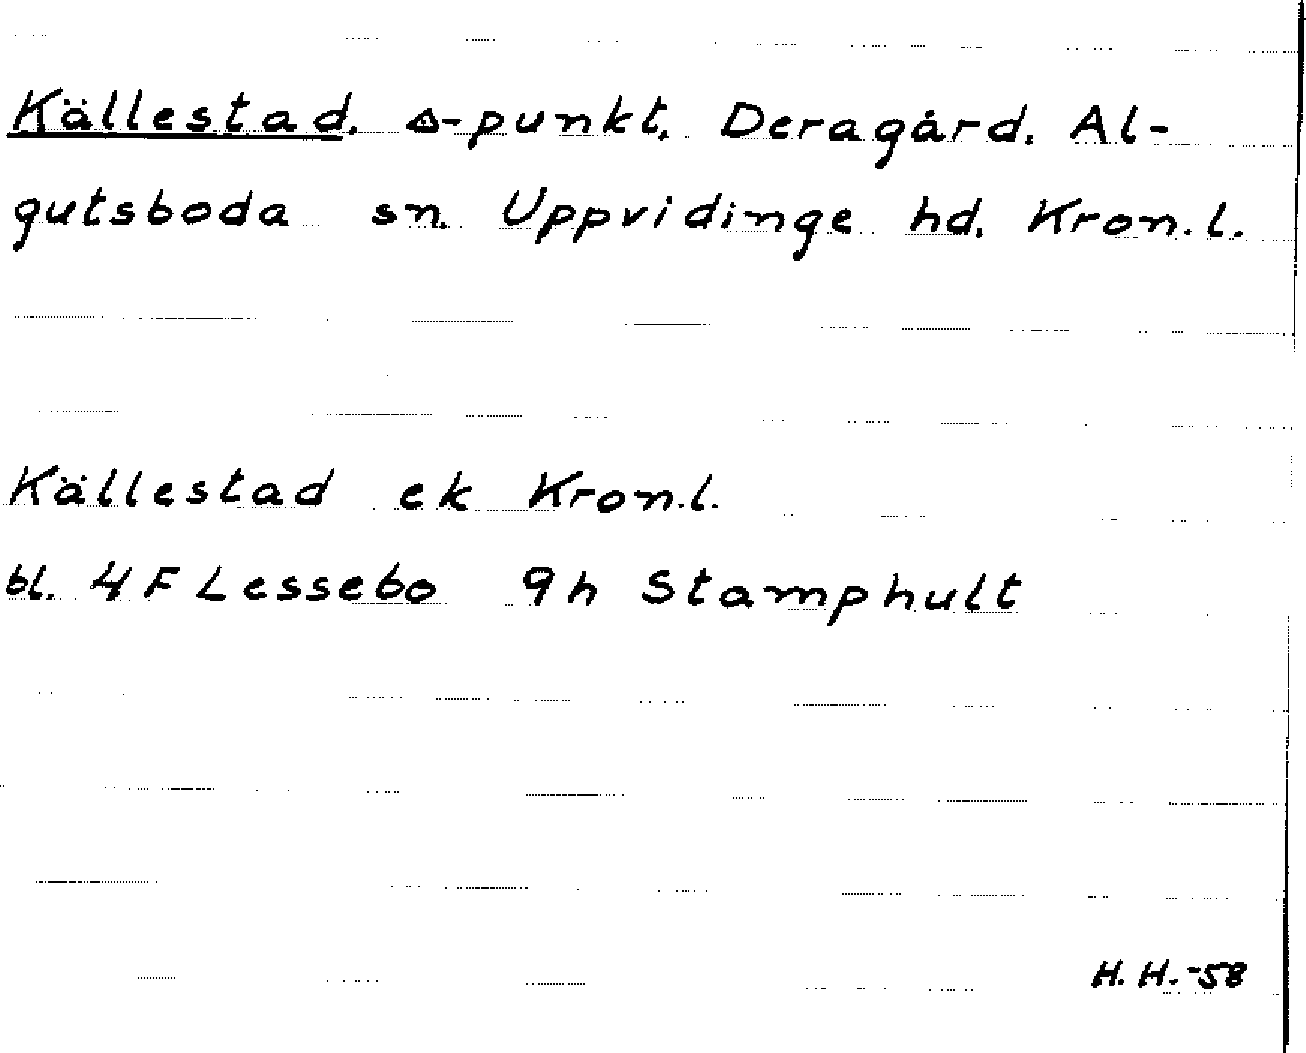 Källestad. △-punkt. Deragård. Al-
gutsboda sn. Uppvidinge hd. Kron.l.
Källestad ek Kron.l.
bl. 4F Lessebo 9h Stamphult
H.H.-58